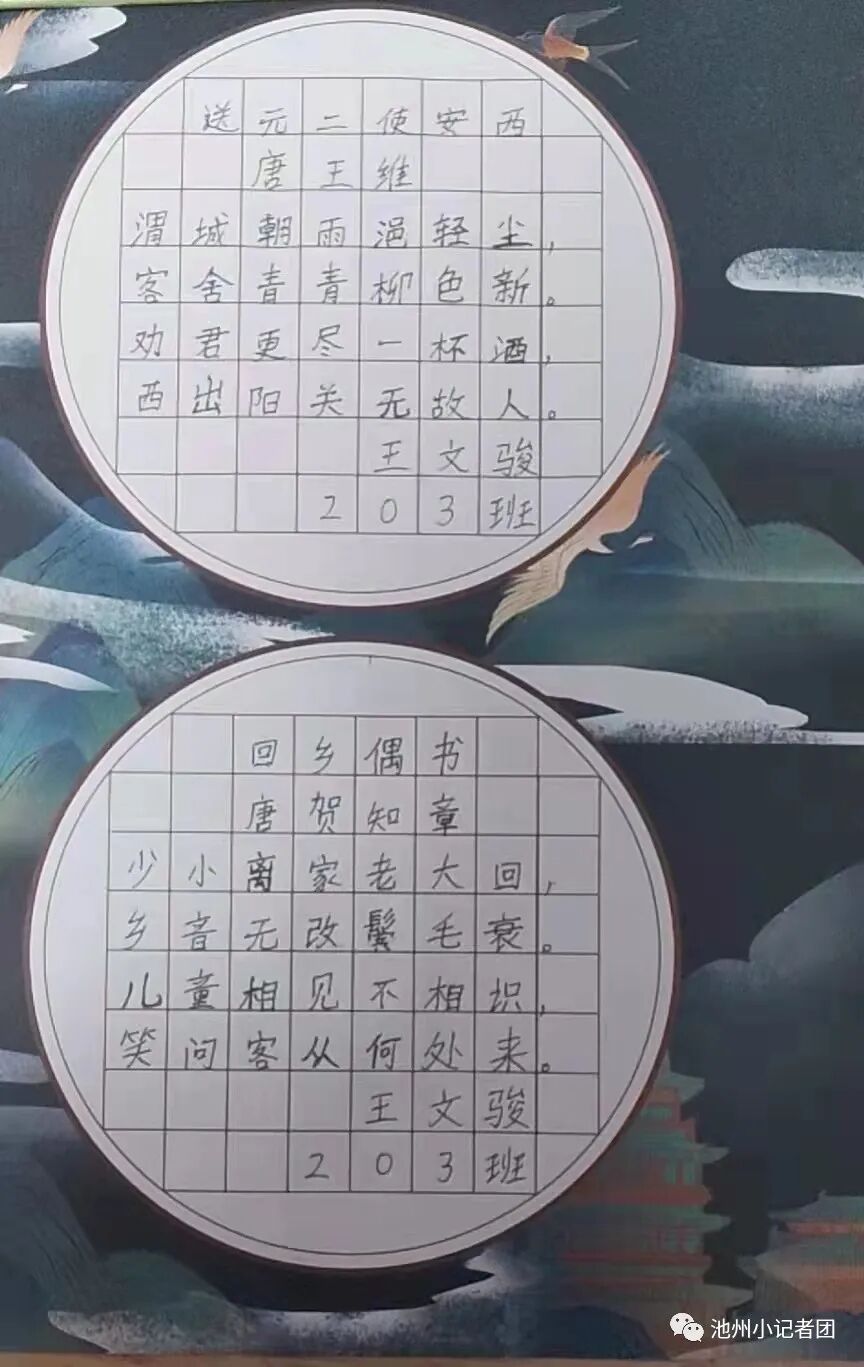 送元二使安西
唐王维
渭城朝雨浥轻尘,
客舍青青柳色新。
劝君更尽一杯酒,
西出阳关无故人。
王文骏
203班
回乡偶书
唐贺知章
少小离家老大回,
乡音无改鬓毛衰。
儿童相见不相识,
笑问客从何处来。
王文骏
203班
池州小记者团